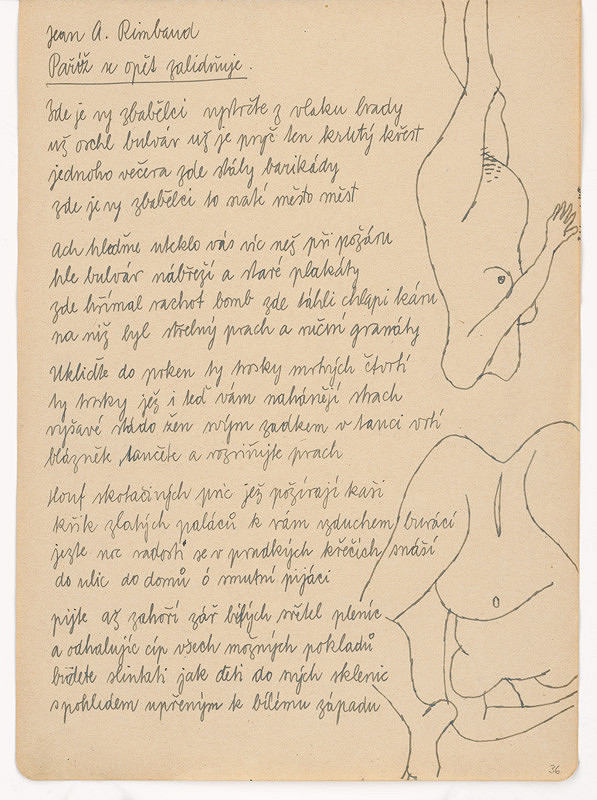 Jean A. Rimbaud
Paříž se opět zalidňuje.
Zde je vy zbabělci vystrčte z vlaku brady
už oschl bulvár už je pryč ten krutý křest
jednoho večera zde stály barikády
zde je vy zbabělci to naté město měst
Ach hleďme uteklo vás víc než při požáru
hle bulvár nábřeží a staré plakáty
zde hřímal rachot bomb zde táhli chlapi káru
na níž byl střelný prach a ruční granáty
Ukliďte do prken ty trosky mrtvých čtvrtí
ty trosky jež i teď vám nahánějí strach
ryšavé stádo žen svým zadkem v tanci vrtí
blázněte, tančete a rozviňujte prach
Houf skotačivých psic jež požírají kaši
křik zlatých paláců k vám vzduchem burácí
jezte noc radosti se v prudkých křečích snáší
do ulic do domů ó smutní pijáci
pijte až zahoří zář bílých světel plenic
a odhalujíc cíp všech možných pokladů
budete slintati jak děti do svých sklenic
s pohledem upřeným k bílému západu
36